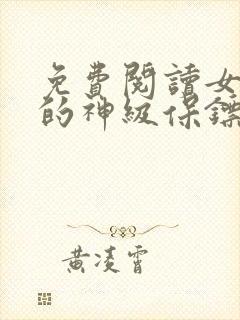 免費閱讀女
的神級保鏢
黃凌霄